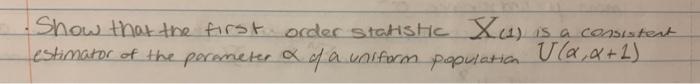 . Show that the first order statistic X(1) is a consistent
estimator of the parameter α of a uniform population U(α,α+1)